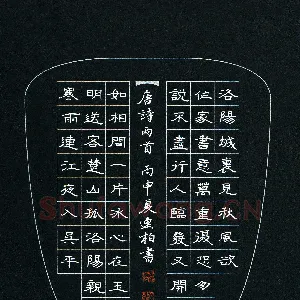 洛陽城裏見秋風欲
作家書意萬重復恐匆
說不盡行人臨發又開
唐詩兩首丙申夏 柏書
寒雨連江夜入吳平
明送客楚山孤洛陽親
如相問一片冰心在玉